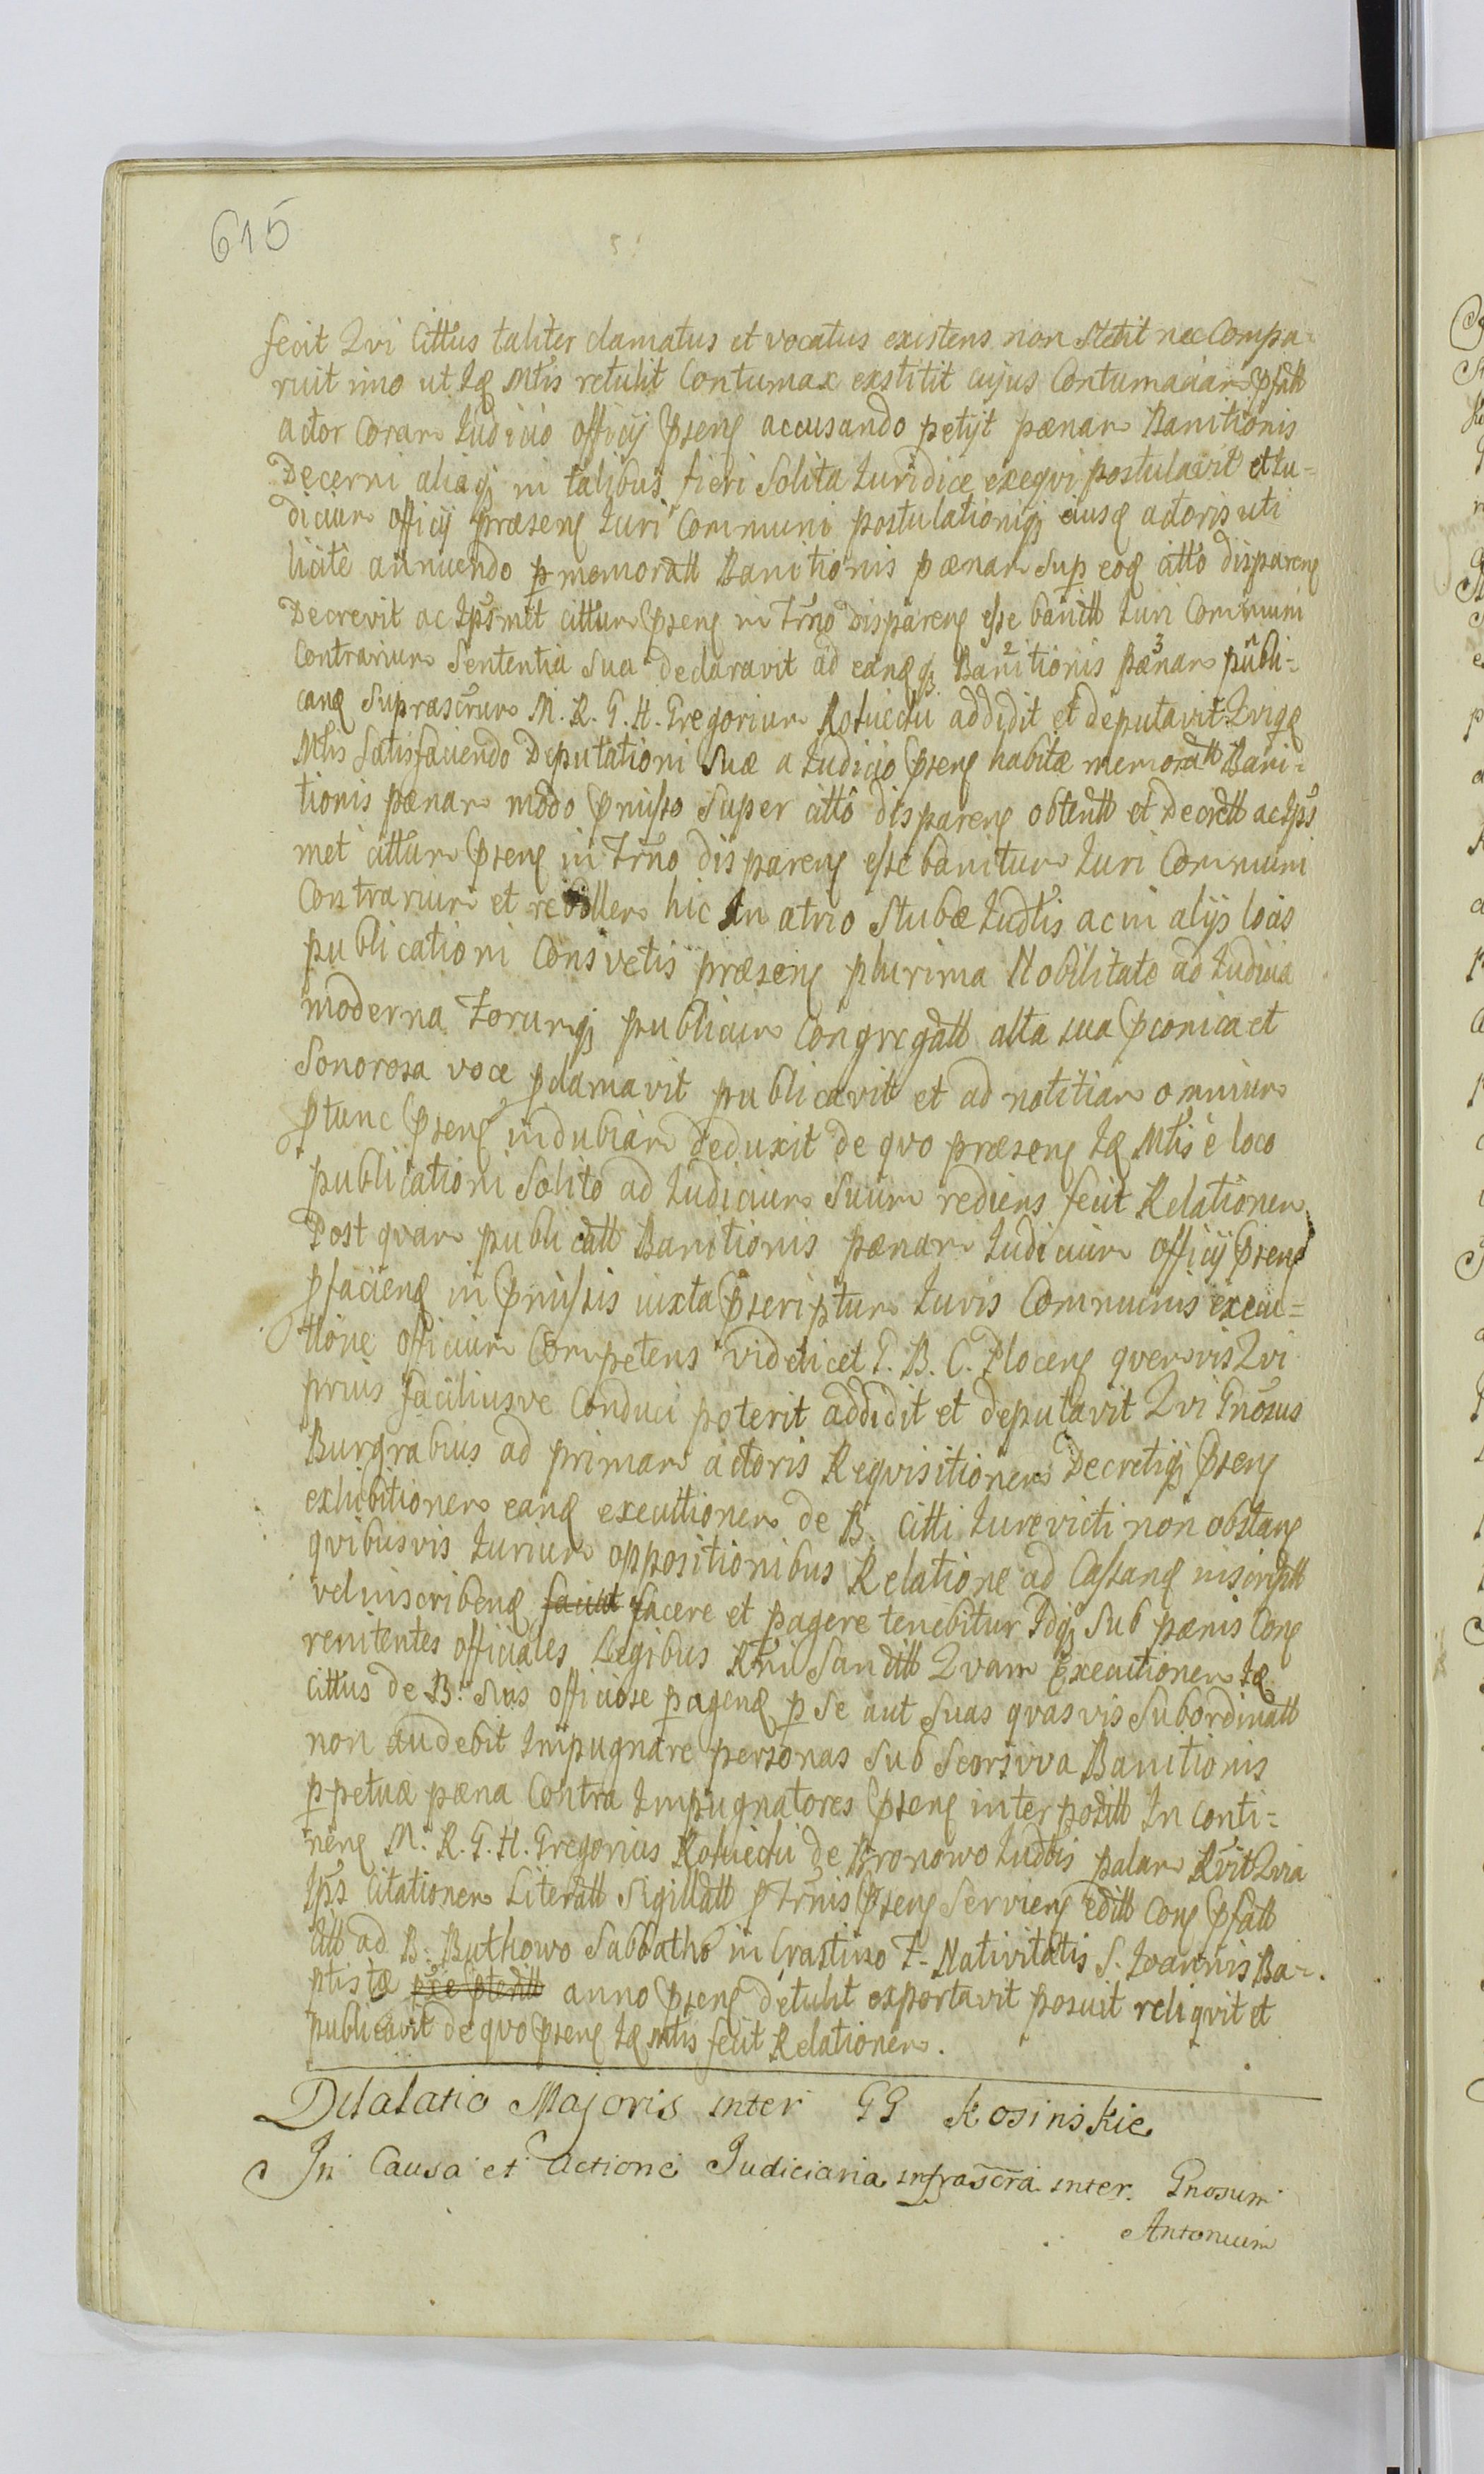 615
fecit Qvi Cittus taliter clamatus et vocatus existens non stetit nec Compa=
ruit imo ut Idę Mtis retulit Contumax exstitit cujus Contumaciam pfatt
actor Coram Iudicio Officij psenę accusando petijt pænam Banitionis
Decerni aliaqȝ in talibus fieri Solita Iuridice exeqvi postulavit et Iu=
dicium officij præsenę Iuri Communi postulationiqȝ eiusę actoris uti
licitè annuendo p memoratt Banitionis pænam Sup eoę citto disparenę
Decrevit ac Ips̃met cittum psenę in Trño Disparenę esse banitt Iuri Communi
Contrarium Sententia Sua declaravit ad eanęqȝ Banitionis pænam publi=
canę Suprascr̃um M. R. G. H. Gregorium Kołuecki addidit et deputavit Qviqę
Mtis Satisfaciendo Deputationi Suæ a Iudicio psenę habitæ memoratt Bani=
tionis pænam modo pmisso Super citto disparenę obtentt et Decrett ac Ips̃
met cittum psenę in Trño disparenę esse banitum Iuri Communi
Contrarium et rebellem hic In atrio Stubæ Iudtis ac in alijs locis
publicationi Consvetis præsenę plurima Nobilitate ad Iudicia
moderna Forumqȝ publicum Congregatt alta sua pconica et
Sonorosa voce pclamavit publicavit et ad notitiam omnium
ptunc psenę indubiam deduxit de qvo præsenę Idę Mtis è loco
publicationi Solito ad Iudicium Suum rediens fecit Relationem
Post qvam publicatt Banitionis pænam Iudicium officij psenę
pfacienę in pmissis iuxta pscriptum Iuris Communis execu=
tione officium Competens videlicet G. B. C. Plocenę qvemvis Qvi
prius faciliusve Conduci poterit addidit et deputavit Qvi Gnosus
Burgrabius ad primam actoris Reqvisitionem Decretiqȝ psenę
exhibitionem eanę executionem de B. citti Iurevicti non obstanę
qvibusvis Iurium oppositionibus Relatione ad Cassanę inscriptt
vel inscribenę faciat facere et pagere tenebitur Idqȝ Sub pænis Conę
renitentes officiales Legibus Rñi Sancitt Qvam Executionem Idę
Cittus de B. Suis officiose pagenę p Se aut Suas qvasvis Subordinatt
non audebit Impugnare personas Sub Seorsiva Banitionis
ppetuæ pæna Contra Impugnatores psenę interpositt In Conti=
nenę M. R. G. H. Gregorius Kołuecki de Bronowo Iudtis palam Rvit Qvia
Ips̃ Citationem Literatt Sigillatt p Trñis psenę Servienę editt Conę pfatt
Citt ad B. Buthowo Sabbatho in Crastino F. Nativitatis S. Ioannis Ba=
ptistæ anno psenę detulit exportavit posuit reliqvit et
publicavit de qvo psenę Idę Mtis fecit Relationem.
Dilatatio Majoris inter GG Kosinskie
In Causa et Actione Judiciaria infrascr̃a inter Gnosum
Antonium